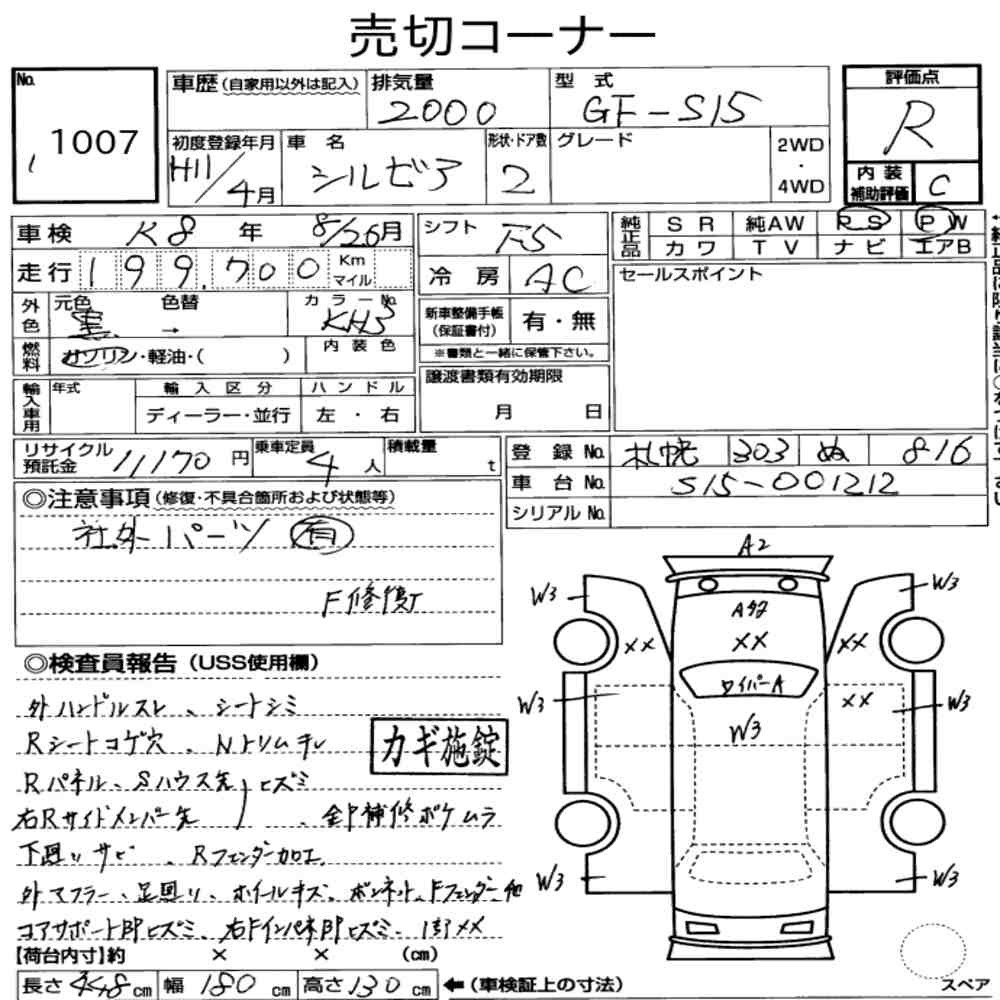 売切コーナー
No. 1007
車歴(自家用以外は記入) 排気量 2000 型式 GF-S15 評価点 R
初度登録年月 H11/4月 車名 シルビア 形状・ドア数 2 グレード 2WD・4WD 内装補助評価 C
車検 R8年 8/26月 シフト F5 純正品 SR 純AW PS PW
カワ TV ナビ エアB
走行 199,700 Km マイル 冷房 AC セールスポイント
外色 元色 黒 → 色替 カラーNo. KH3 新車整備手帳(保証書付) 有・無
燃料 ガソリン・軽油・( ) 内装色 ※書類と一緒に保管下さい。
輸入車用 年式 輸入区分 ハンドル 譲渡書類有効期限
ディーラー・並行 左・右 月 日
リサイクル預託金 11170円 乗車定員 4人 積載量 t 登録No. 札幌 303 ぬ 816
車台No. S15-001212
シリアルNo.
◎注意事項(修復・不具合箇所および状態等)
社外パーツ 有
F修復
◎検査員報告(USS使用欄)
外ハンドルスレ、シートシミ
Rシートコゲ穴、Nトリムキレ
カギ施錠
Rパネル、Sハウス先 ヒズミ
右Rサイドメンバー先 、全P補修ボケムラ
下廻りサビ、Rフェンダー加工
外マフラー、足廻り、ホイールキズ、ボンネット、Fフェンダー他
コアサポート即ヒズミ、右Fインパネ即ヒズミ、
【荷台内寸】約 × × (cm)
長さ 448cm 幅 180cm 高さ 130cm ←(車検証上の寸法)
A2
W3 W3
Aタタ
×× ×× ××
ワイパーA
W3 W3 ×× W3
W3 W3
スペア